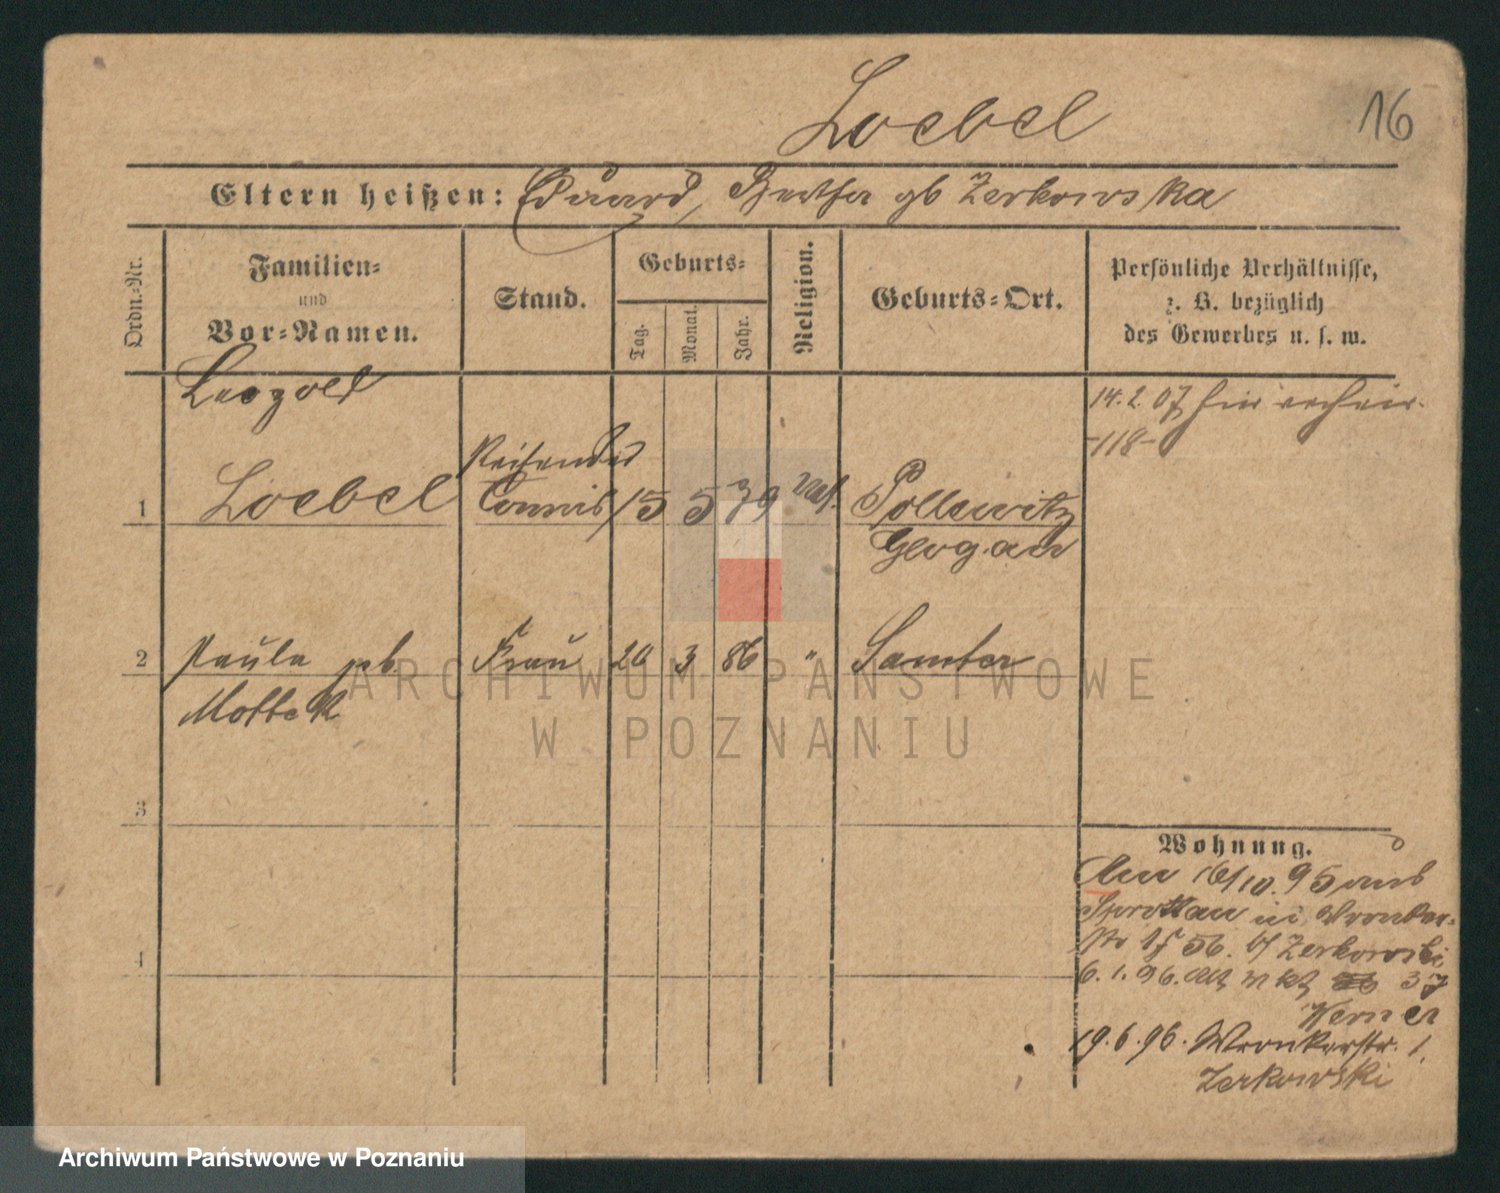 Loebel
16
Eltern heißen: Eduard, Bertha gb Zerkowska
Ordn.-Nr.
Familien-
und
Vor-Namen.
Stand.
Geburts-
Tag.
Monat.
Jahr.
Religion.
Geburts-Ort.
Persönliche Verhältnisse,
z. B. bezüglich
des Gewerbes u. s. w.
Leopold
14. 2. 07 hier
-118-
Reisender
1 Loebel Commis 15 5 79 Pollwitz
Glogau
2 Paula geb Frau 20 3 86 " Samter
Mottek
3
4
Wohnung.
Am 16/10. 95 aus
Sprottau in Wronker-
56. Zerkowski
6. 1. 96. 37
19. 6. 96. Wronkerstr. 1.
Zerkowski
ARCHIWUM PAŃSTWOWE
W POZNANIU
Archiwum Państwowe w Poznaniu